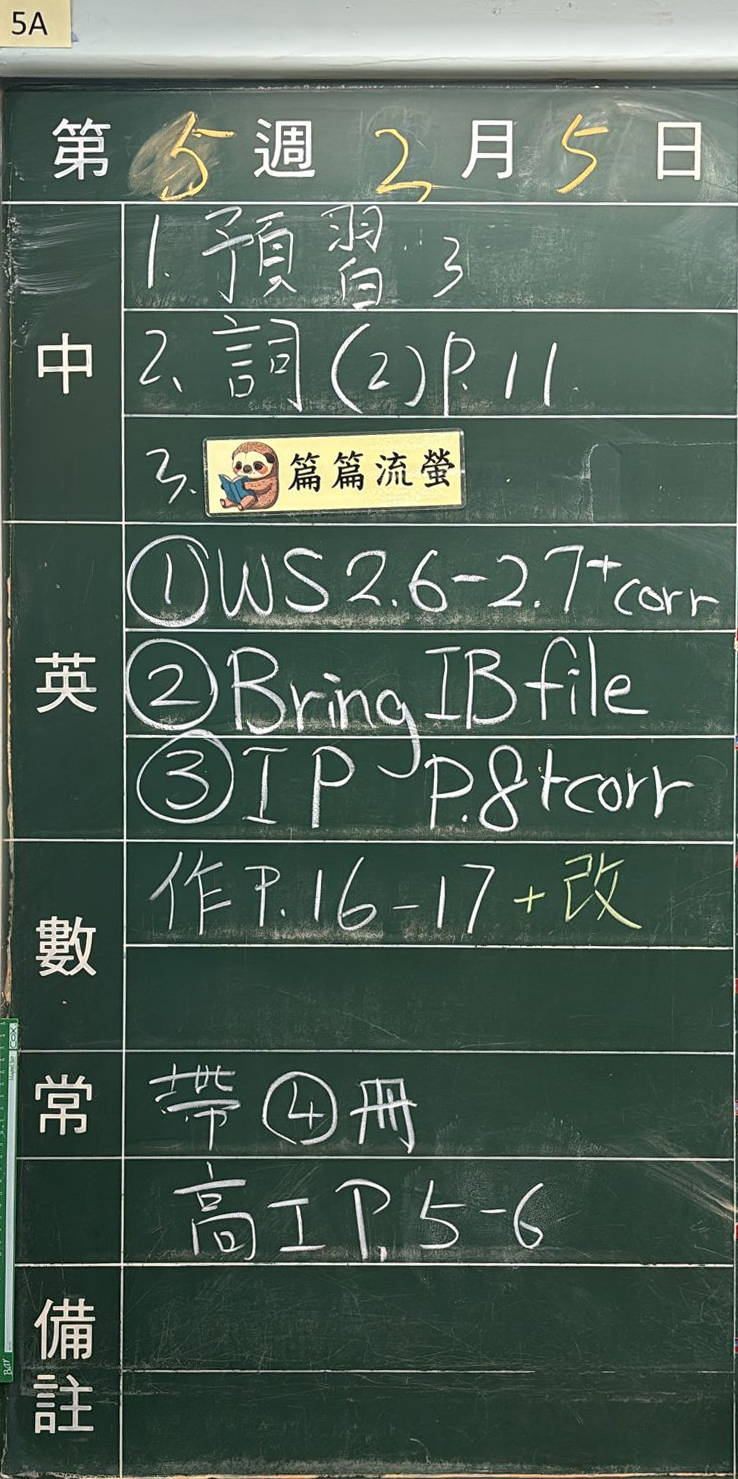 5A
第5週2月5日
中
1. 預習 3
2. 詞(2)P.11
3. 篇篇流螢
英
①WS 2.6-2.7+corr
②Bring IB file
③IP P.8+corr
數
作P.16-17+改
常
帶④冊
高IP.5-6
備註